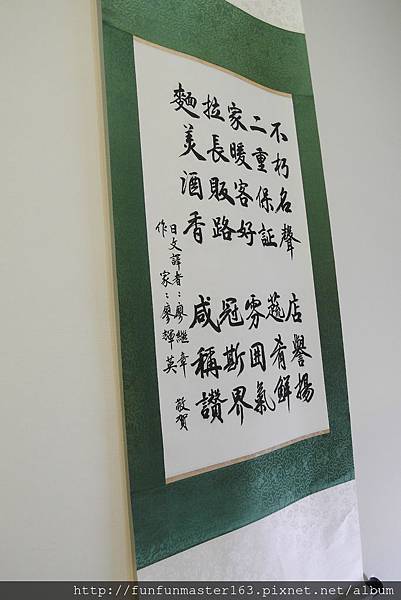 不朽名聲 店譽揚
二重保証 蔬肴鮮
家暖客好 雰囲氣
拉長販路 冠斯界
麵美酒香 咸稱讚
日文譯者：廖繼章
作家：廖輝英 敬賀
http://funfunmaster163.pixnet.net/album